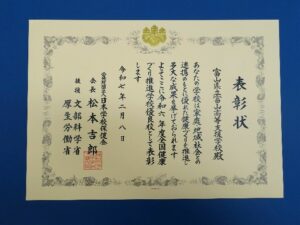 表彰状
富山県立富山高等支援学校殿
あなたの学校は家庭、地域社会との
連携のもとに優れた健康づくりを推進し
多大な成果を挙げておられます
よってここに令和六年度全国健康
づくり推進学校優良校として表彰
します
令和七年二月八日
公益財団法人日本学校保健会
会長 松本吉郎
後援 文部科学省
厚生労働省